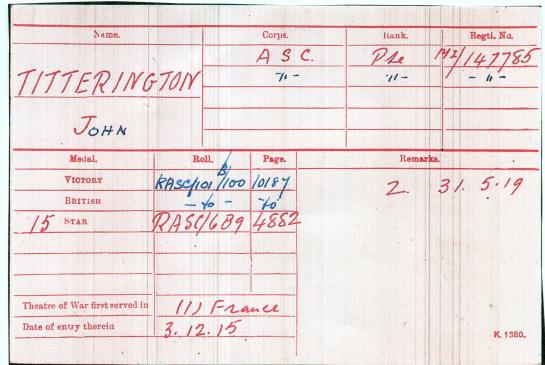 Name. Corps. Rank. Regtl. No.
A S C. Pte M2/147785
TITTERINGTON -"- -"- -"-
JOHN
Medal. Roll. Page. Remarks.
VICTORY RASC/101 B/100 10187 2. 31. 5.19
BRITISH -do- do
15 STAR RASC/6B9 4882
Theatre of War first served in (1) France
Date of entry therein 3.12.15
K. 1380.